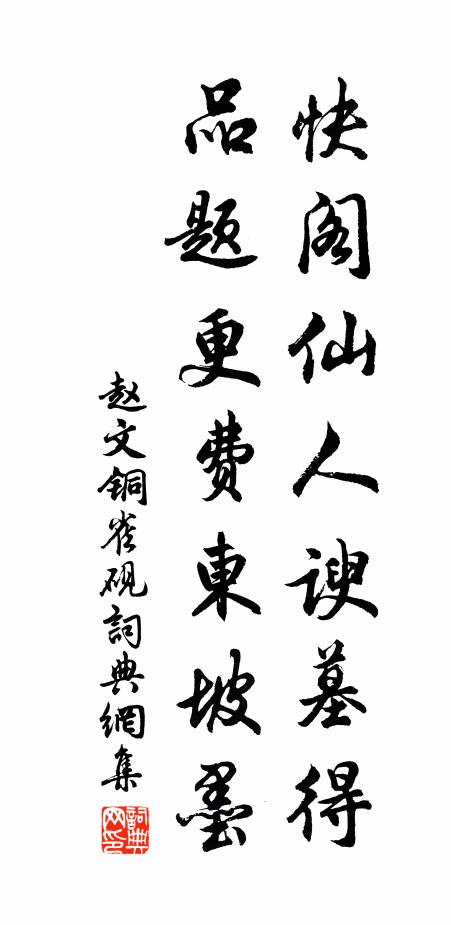 快阁仙人谀墓得
品题更费東坡墨
赵文铜雀砚詞典網集
詞典网印